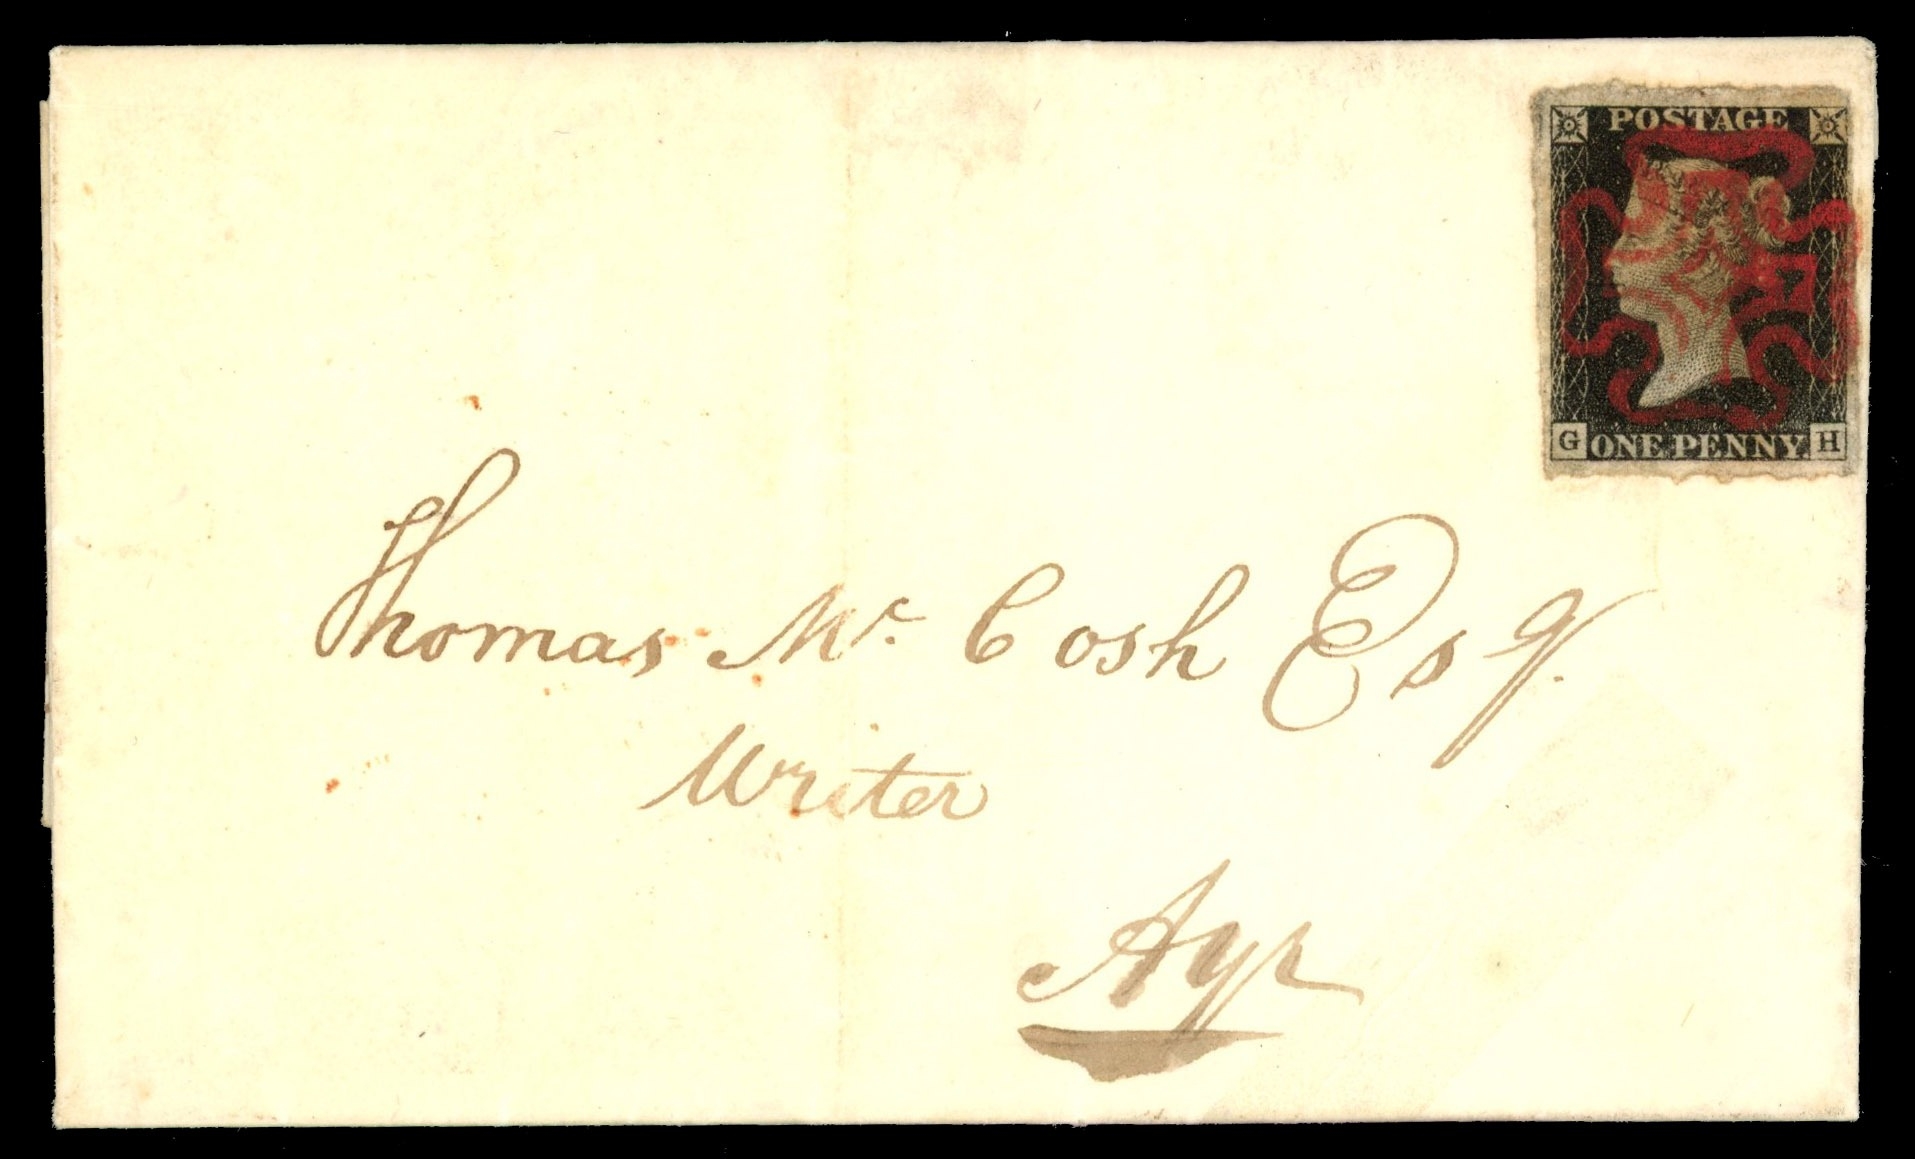 POSTAGE
G ONE PENNY H
Thomas Mc. Cosh Esq.
Writer
Ayr